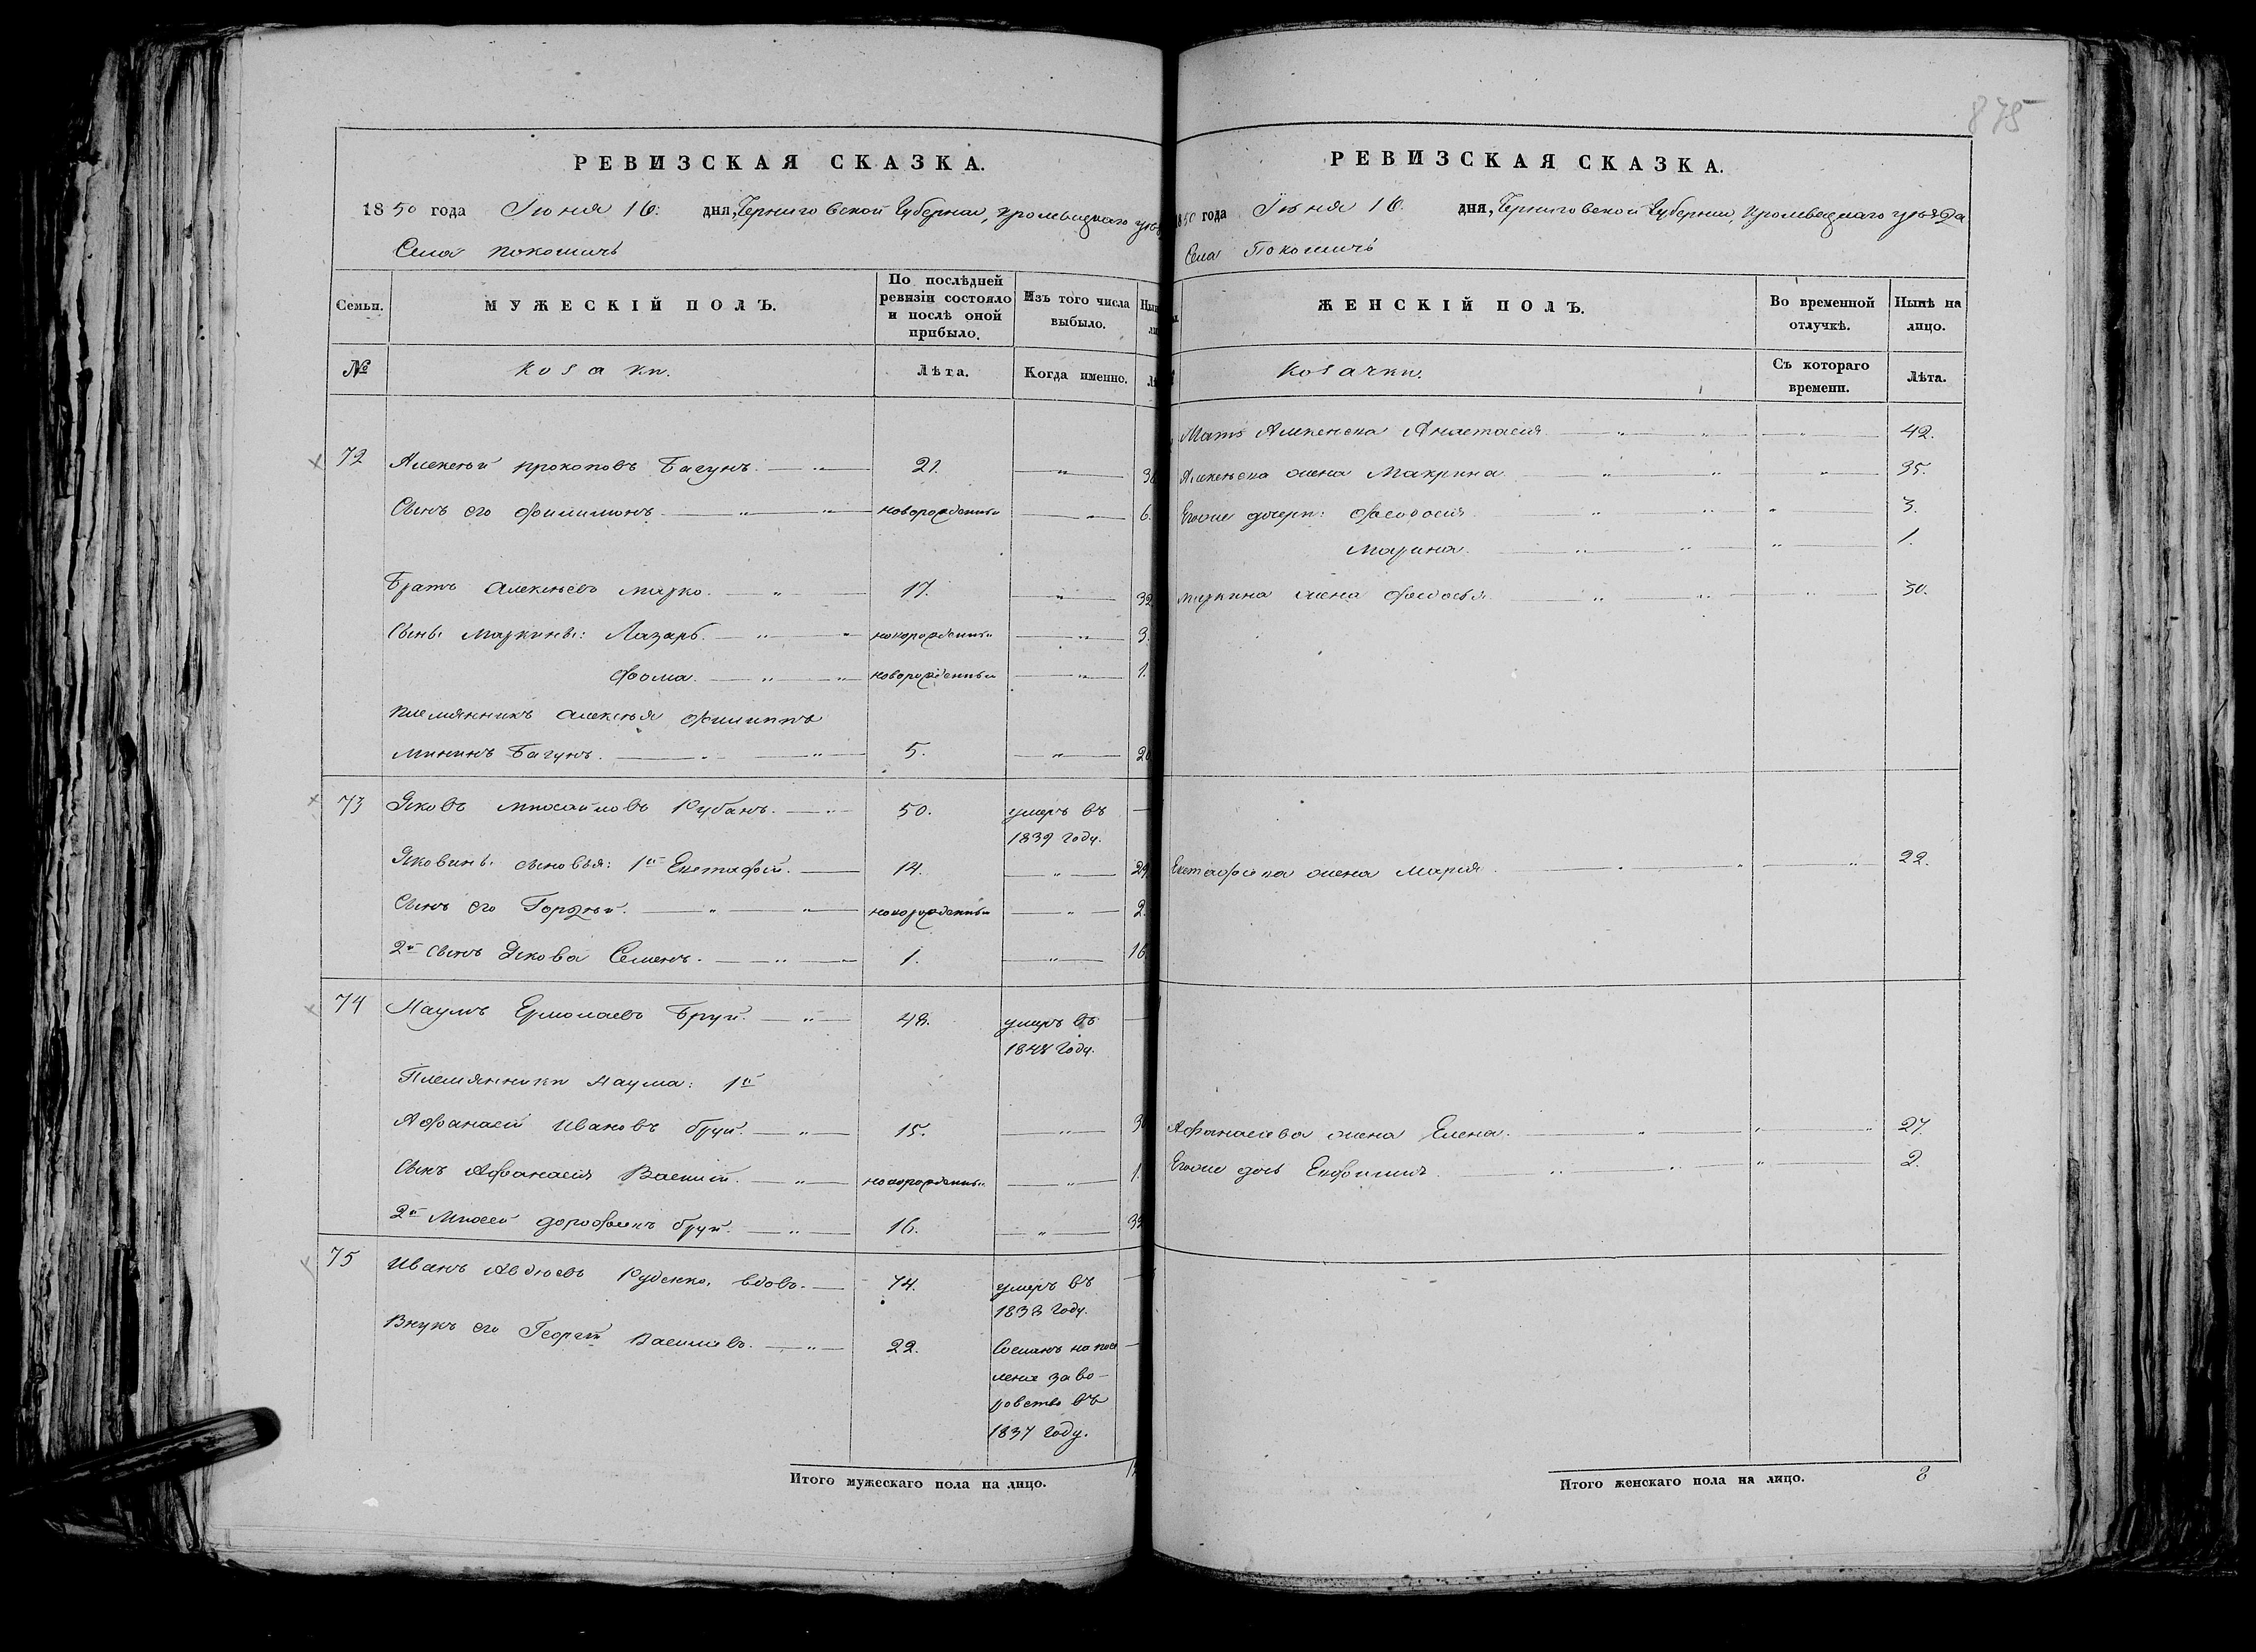 РЕВИЗСКАЯ СКАЗКА.
1850 года Іюня 16. дня, Черниговской Губерніи, Кролевецкаго
Села Покошичь
Семьи. МУЖЕСКІЙ ПОЛЪ. По послѣдней ревизіи состояло и послѣ оной прибыло. Изъ того числа выбыло.
№ Козаки. Лѣта. Когда именно.
72 Алексѣй Прокоповъ Багунъ. 21. „
Сынъ его Филимонъ „ „ новорожденный „ 6.
Братъ Алексѣевъ Марко. „ 17. „ 32
Сыны Маркины: Лазарь. „ „ новорожденный „ 3.
Фома. „ „ новорожденный „ 1.
Племянникъ Алексѣя Филиппъ
Мининъ Багунъ. „ „ 5. „ 20
73 Яковъ Михайловъ Рубанъ. „ 50. умеръ въ —
1839 году.
Яковины сыновья: 1й Евстафій. 14. „ 29
Сынъ его Гордѣй. „ „ новорожденный „ 2.
2й сынъ Якова Семенъ. „ „ 1. „ 16
74 Наумъ Ермолаевъ Бруй. „ 48. умеръ въ —
1848 году.
Племянники Наума: 1й
Афанасій Ивановъ Бруй. „ 15. „ 30
Сынъ Афанасія Василій. „ новорожденный „ 1.
2й Мисей Дорофеевъ Бруй. „ 16. „
75 Иванъ Авдіевъ Руденко, вдовъ. 74. умеръ въ —
1838 году.
Внукъ его Георгій Васильевъ. „ 22. Сосланъ на посе —
леніе за во-
ровство въ
1837 году.
Итого мужескаго пола на лицо.
875
РЕВИЗСКАЯ СКАЗКА.
1850 года Іюня 16. дня, Черниговской Губерніи, Кролевецкаго уѣзда
Села Покошичь
ЖЕНСКІЙ ПОЛЪ. Во временной отлучкѣ. Нынѣ на лицо.
Козачки. Съ котораго времени. Лѣта.
Мать Алексѣева Анастасія „ „ „ 42.
Алексѣева жена Макрина. „ „ „ 35.
Егоже дочери: Феодосія „ „ „ 3.
Марина. „ „ „ 1.
Маркина жена Федосья „ „ „ 30.
Евстафіева жена Марія. „ „ „ 22.
Афанасіева жена Елена. „ „ „ 27.
Егоже дочь Евфимія „ „ „ 2.
Итого женскаго пола на лицо. 8